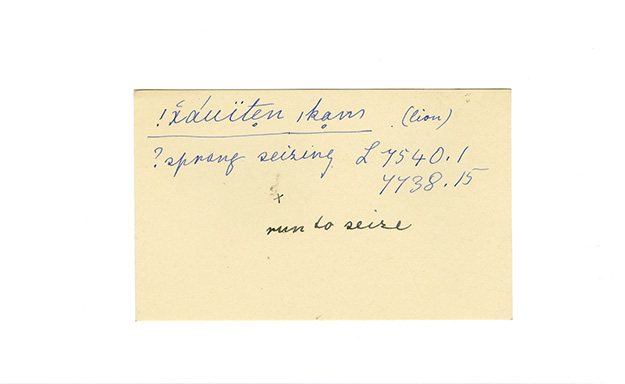 !x̌áuïtẹn ıkạm (lion)
? sprang seizing L 7540.1
7738.15
x
run to seize